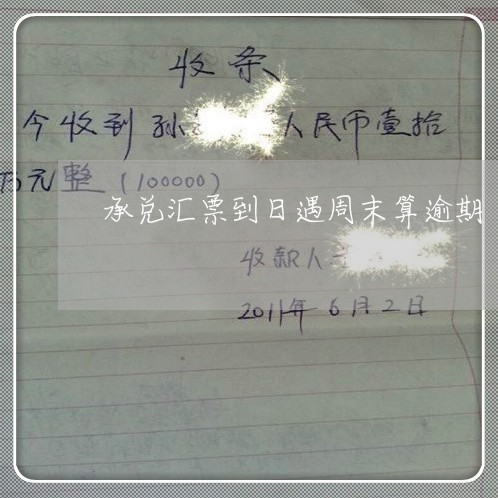 收条
今收到孙 人民币壹拾
万元整(100000)
承兑汇票到日遇周末算逾期
收款人
2011年6月2日